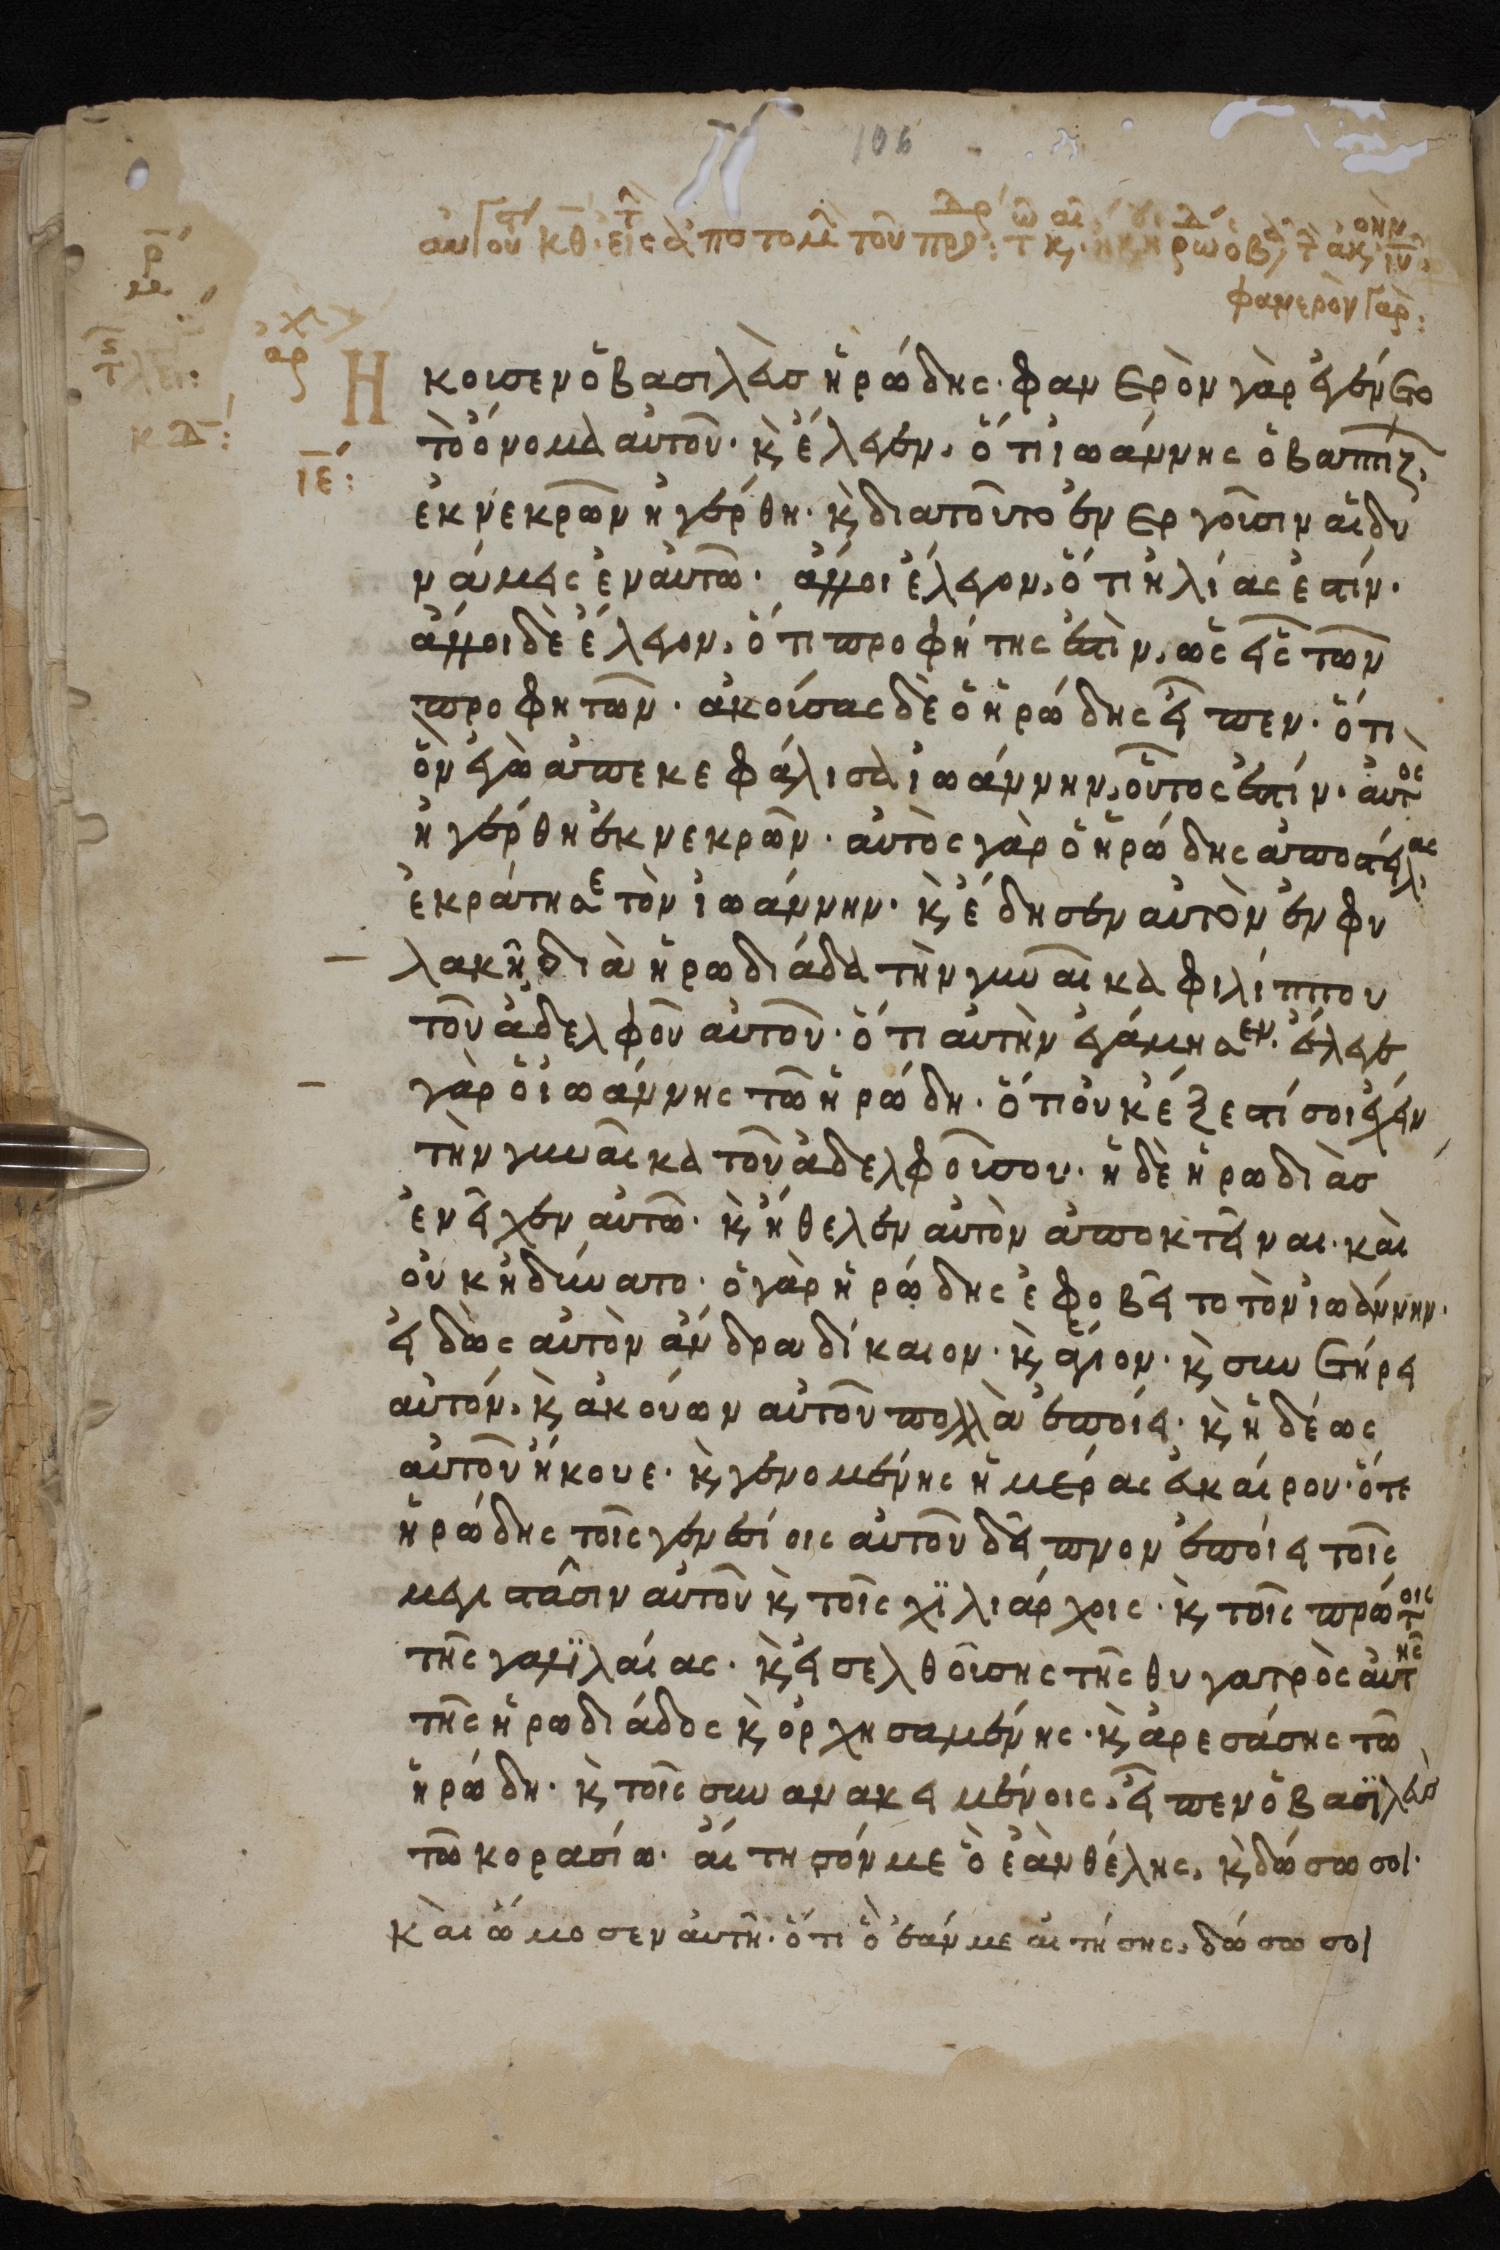 106
φανερὸν γὰρ:
κδ:
ιε:
Ἤκουσεν ὁ βασιλεὺς ἡρώδης· φανερὸν γὰρ ἐγένετο
τὸ ὄνομα αὐτοῦ· κ̀ ἔλεγεν, ὅτι ἰωάννης ὁ βαπτιζ
ἐκ νεκρῶν ἠγέρθη· κ̀ διατοῦτο ἐνεργοῦσιν αἱ δυ
νάμεις ἐν αὐτῶ· ἄλλοι ἔλεγον, ὅτι ἠλίας ἐστίν·
ἄλλοι δὲ ἔλεγον, ὅτι προφήτης ἐστὶν, ὡς εἷς τῶν
προφητῶν· ἀκούσας δὲ ὁ ἡρώδης εἶπεν· ὅτι
ὃν ἐγὼ ἀπεκεφάλισα ἰωάννην, οὗτος ἐστίν· αὐτὸς
ἠγέρθη ἐκ νεκρῶν· αὐτὸς γὰρ ὁ ἡρώδης ἀποστείλας
ἐκράτησε τὸν ἰωάννην· κ̀ ἔδησεν αὐτὸν ἐν φυ
λακῆ διὰ ἡρωδιάδα τὴν γυναῖκα φιλίππου
τοῦ ἀδελφοῦ αὐτοῦ· ὅτι αὐτὴν ἐγάμησεν· ἔλεγε
γὰρ ὁ ἰωάννης τῶ ἡρώδη· ὅτι οὐκ ἔξεστί σοι ἔχειν
τὴν γυναῖκα τοῦ ἀδελφοῦ σου· ἡ δὲ ἡρωδιὰς
ἐνεῖχεν αὐτῶ· κ̀ ἤθελεν αὐτὸν ἀποκτεῖναι· καὶ
οὐκ ἠδύνατο· ὁ γὰρ ἡρώδης ἐφοβεῖτο τὸν ἰωάννην·
εἰδὼς αὐτὸν ἄνδρα δίκαιον· κ̀ ἅγιον· κ̀ συνετήρει
αὐτόν, κ̀ ἀκούων αὐτοῦ πολλὰ ἐποίει· κ̀ ἡδέως
αὐτοῦ ἤκουε· κ̀ γενομένης ἡμέρας εὐκαίρου· ὅτε
ἡρώδης τοῖς γενεσίοις αὐτοῦ δεῖπνον ἐποίει τοῖς
μεγιστᾶσιν αὐτοῦ κ̀ τοῖς χϊλιάρχοις· κ̀ τοῖς πρώτοις
τῆς γαλϊλαίας· κ̀ εἰσελθούσης τῆς θυγατρὸς αὐτῆς
τῆς ἡρωδιάδος κ̀ ὀρχησαμένης· κ̀ ἀρεσάσης τῶ
ἡρώδη· κ̀ τοῖς συνανακειμένοις, εἶπεν ὁ βασϊλεὺς
τῶ κορασίω· αἴτησόν με ὃ ἐὰν θέλης, κ̀ δώσω σοι·
Καὶ ὤμοσεν αὐτῆ· ὅτι ὃ ἐάν με αἰτήσης, δώσω σοι